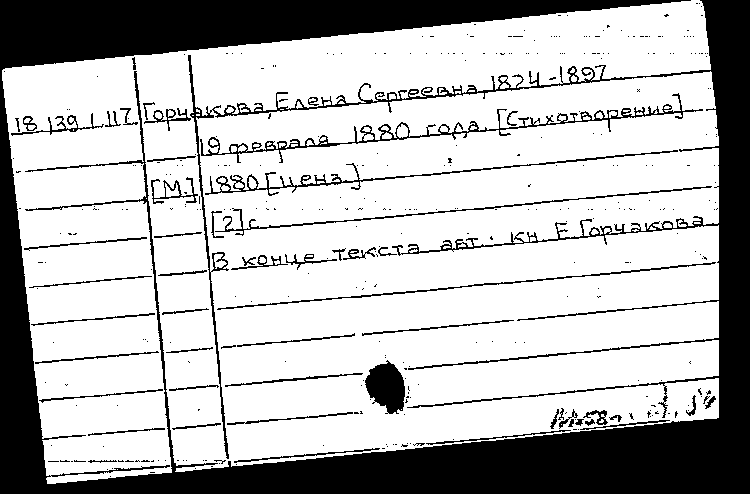 18 139.1.117 Горчакова, Елена Сергеевна, 1824-1897
19 февраля 1880 года. [Стихотворение]
[М.] 1880 [ценз.]
[2] с.
В конце текста авт.: кн. Е. Горчакова